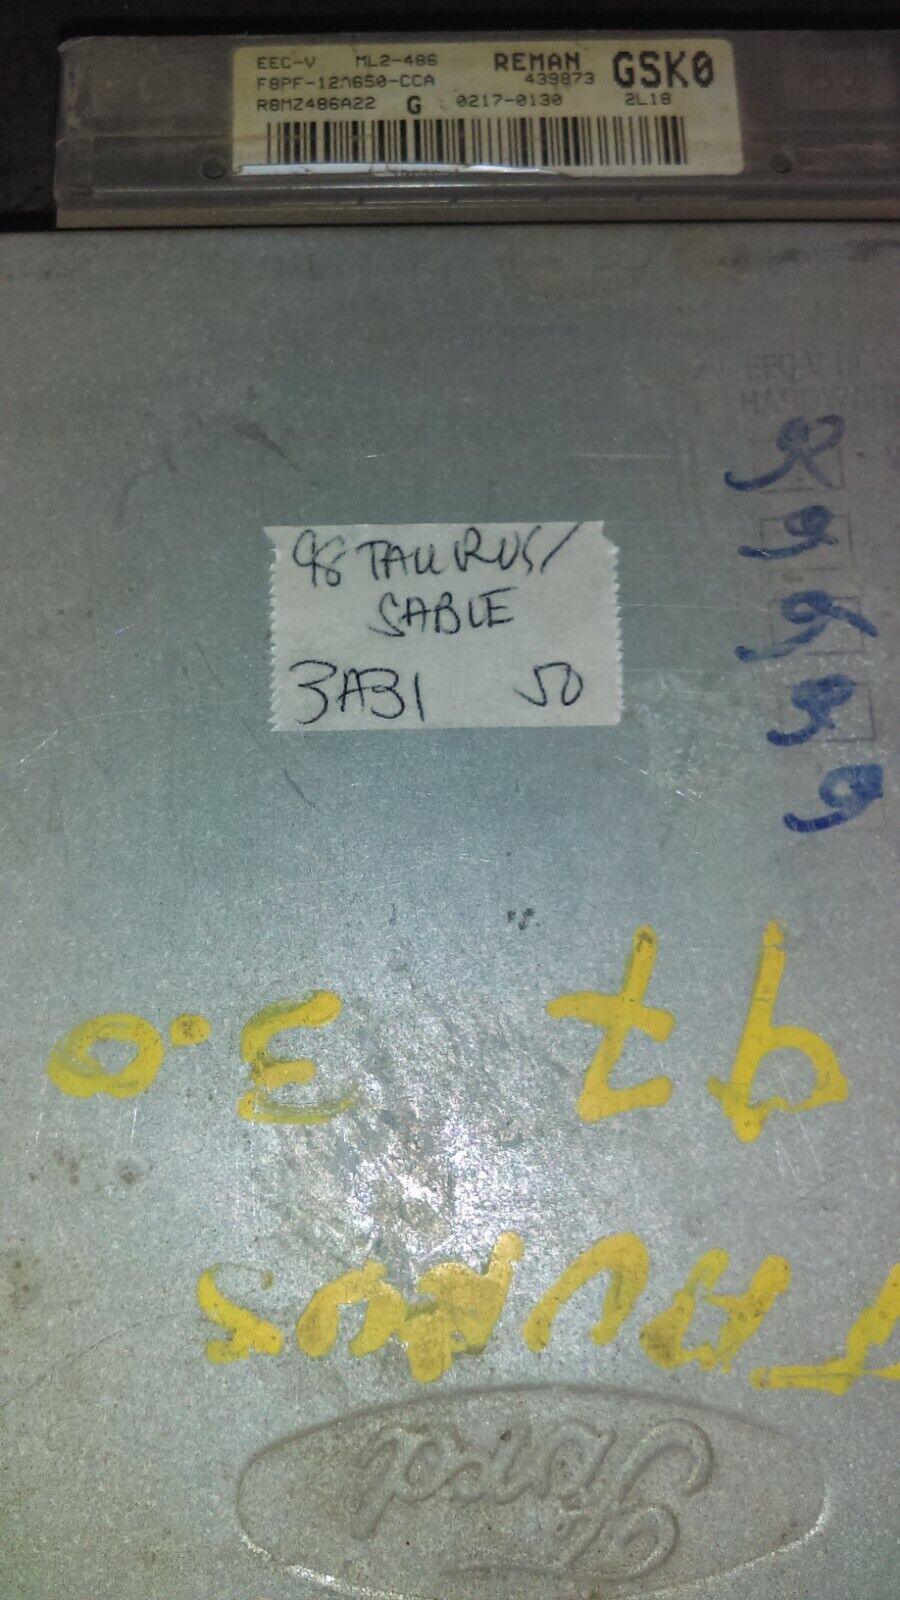 EEC-V ML2-486 REMAN GSK0
F8PF-12A650-CCA 439873
R8MZ486A22 G 0217-0130 2L18
98 TAURUS/
SABLE
3A31 50
97 3.0
TAURUS
Ford